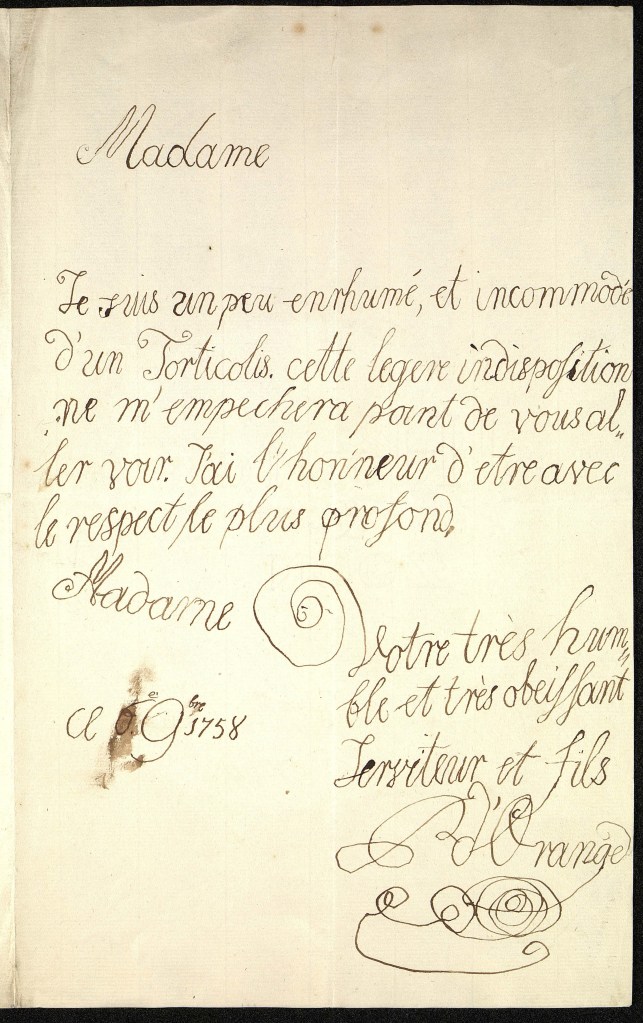 Madame
Je suis un peu enrhumé, et incommodé
d'un Torticolis. cette legere indisposition
ne m'empechera point de vous al„
ler voir. J'ai l'honneur d'etre avec
le respect le plus profond,
Madame
Votre très hum„
ble et très obeissant
ce 9bre 1758
Serviteur et fils
d'Orange